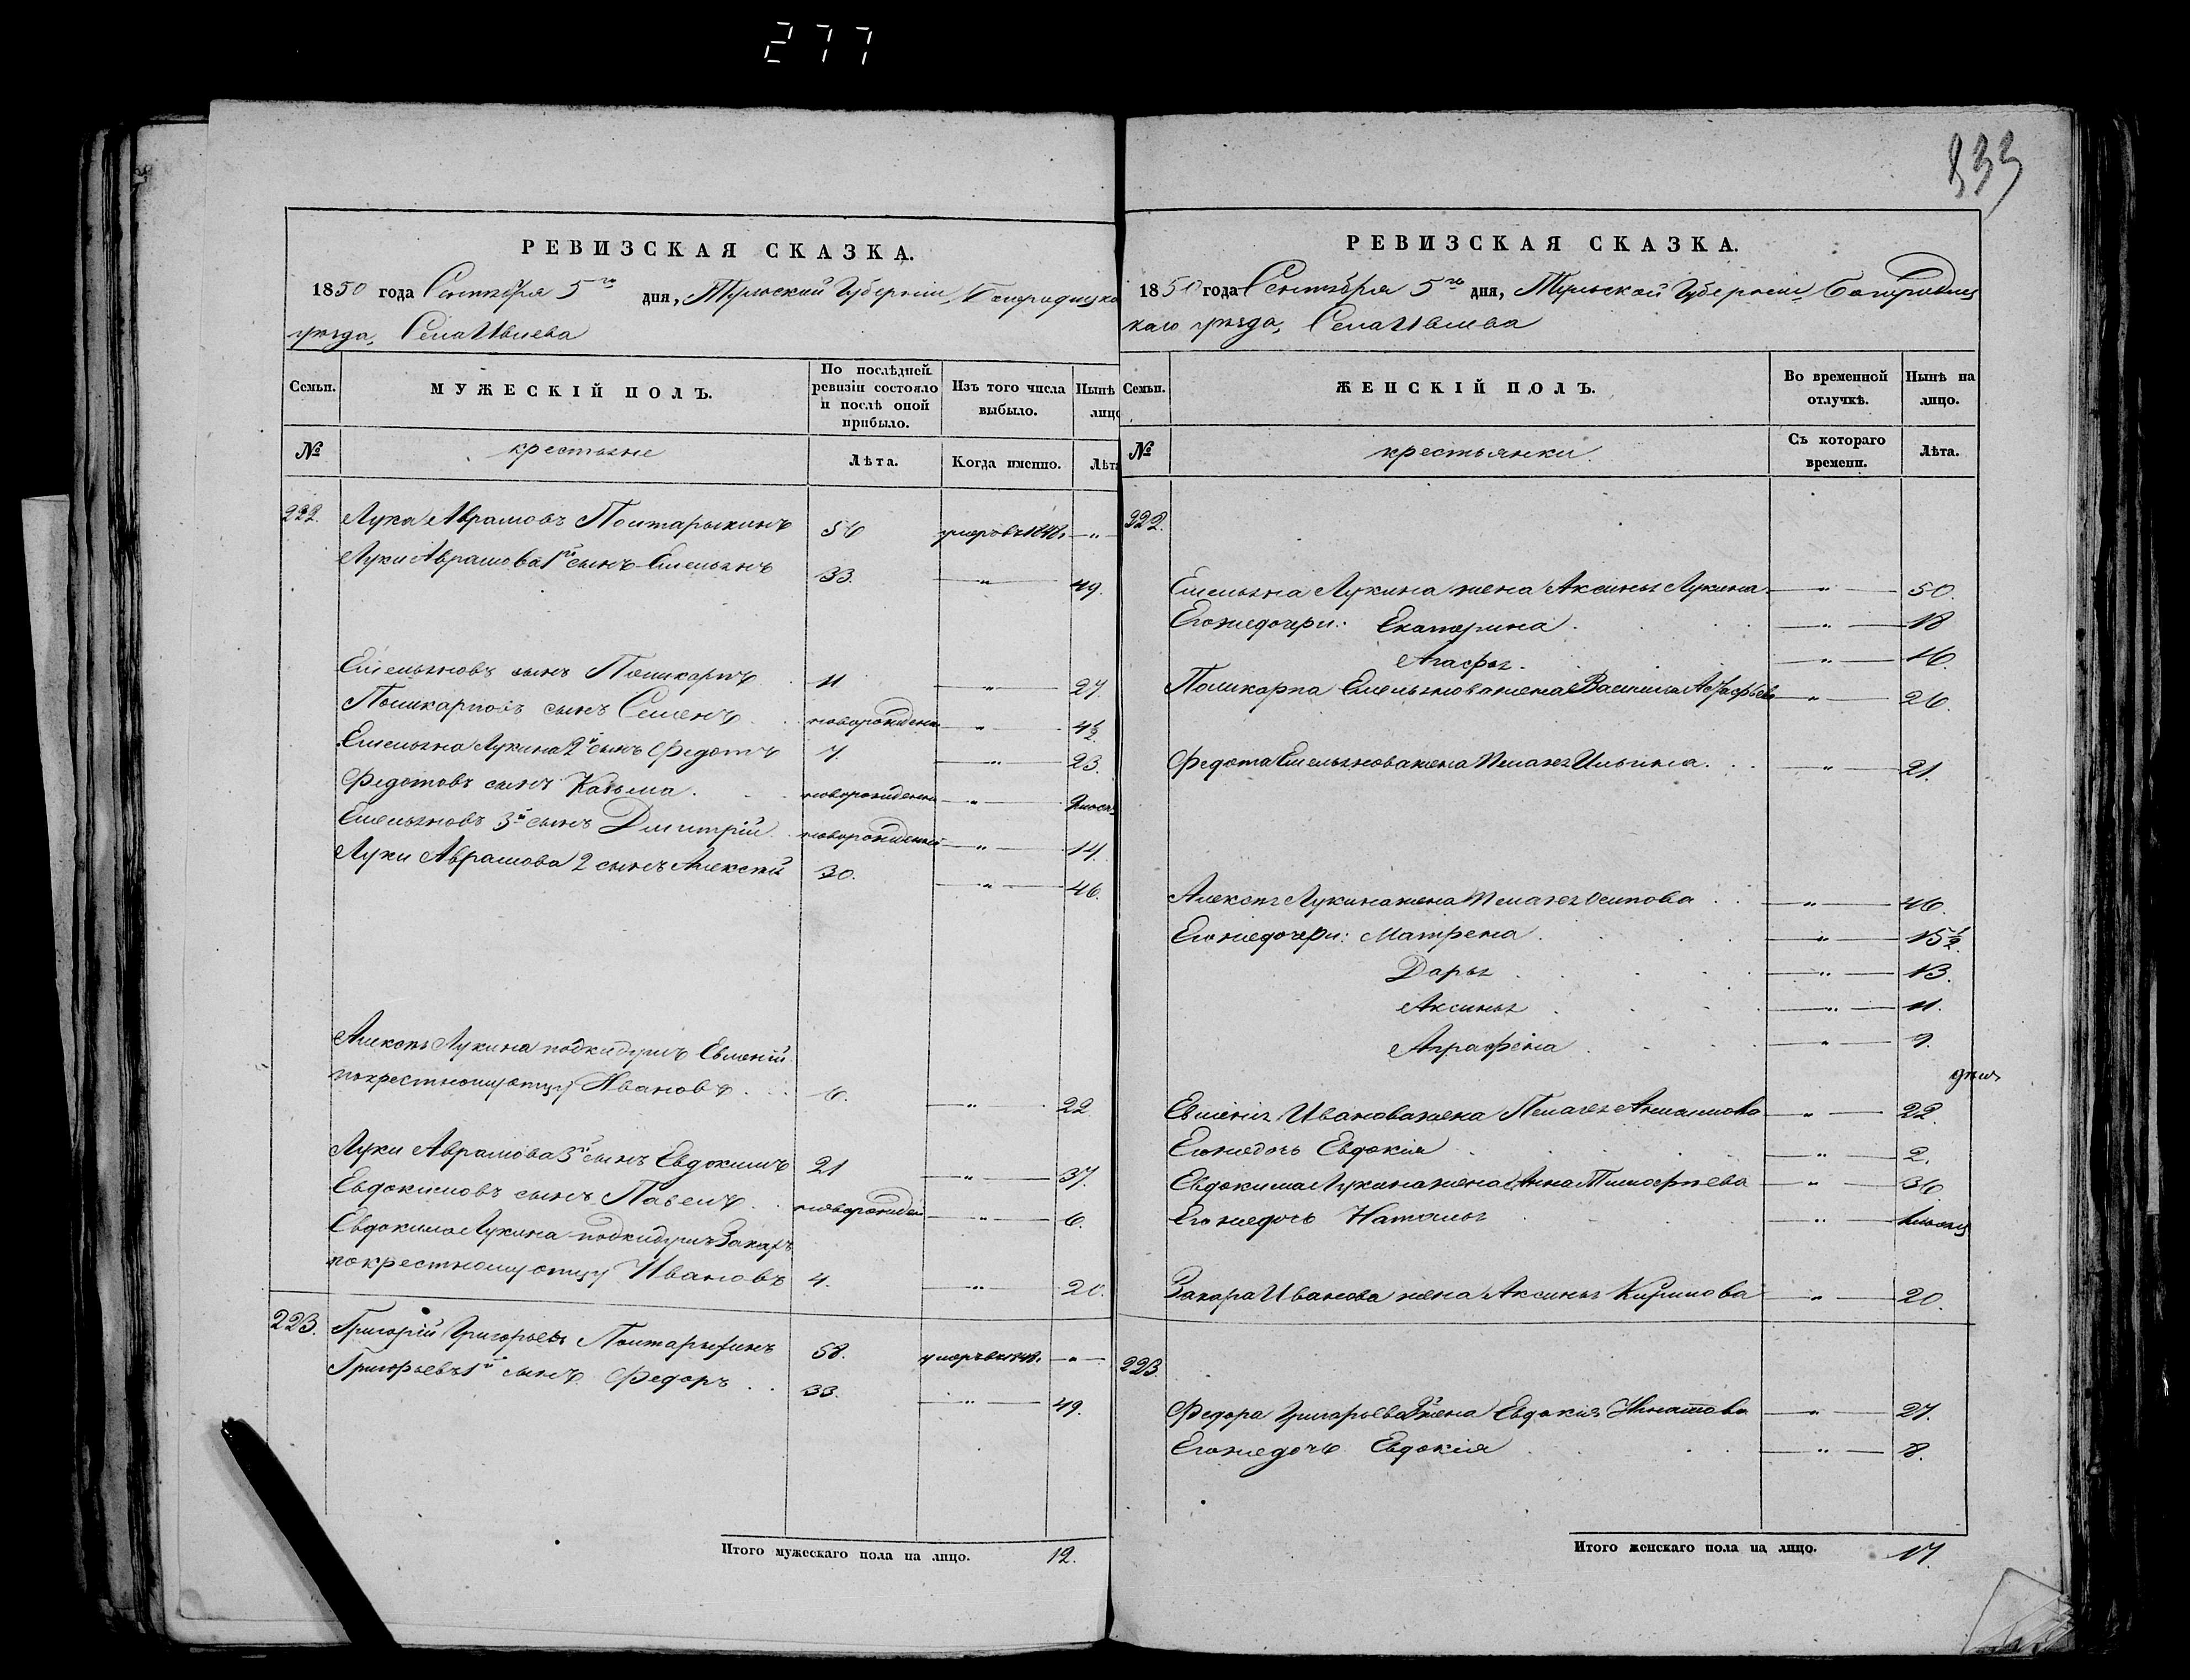 277
РЕВИЗСКАЯ СКАЗКА.
1850 года Сентября 5го дня, Тульской Губернiи, Богородицка
уѣзда, Села Ивлева
Семьи.
МУЖЕСКIЙ ПОЛЪ.
По послѣдней
ревизiи состояло
и послѣ оной
прибыло.
Изъ того числа
выбыло.
Нынѣ
лицо
№
крестьяне
Лѣта.
Когда именно.
Лѣта
222. Лука Аврамовъ Полтарыхинъ 56 умеръ въ 1848. — " —
Луки Аврамова 1й сынъ Емельянъ 33. — " — 49.
Емельяновъ сынъ Поликарпъ 11 — " — 27.
Поликарповъ сынъ Семенъ новорожденн — " — 4½
Емельяна Лукина 2й сынъ Федотъ 7. — " — 23.
Федотовъ сынъ Казьма новорожденны — " —
Емельяновъ 3й сынъ Дмитрiй новорожденный — " — 14.
Луки Аврамова 2 сынъ Алексѣй 30. — " — 46.
Алексѣя Лукина подкидышъ Евменiй
по крестному отцу Ивановъ 6. — " — 22.
Луки Аврамова 3й сынъ Евдокимъ 21 — " — 37.
Евдокимовъ сынъ Павелъ новорожден — " — 6.
Евдокима Лукина подкидышъ Захаръ
по крестному отцу Ивановъ 4. — " — 20.
223. Григорiй Григорьевъ Полтарыхинъ 58. умеръ въ 1848. — " —
Григорьевъ 1й сынъ Федоръ 33. — " — 49.
Итого мужескаго пола на лицо. 12.
833
РЕВИЗСКАЯ СКАЗКА.
1850 года Сентября 5го дня, Тульской Губернiи, Богородиц
каго уѣзда, Села Ивлева
Семьи.
ЖЕНСКIЙ ПОЛЪ.
Во временной
отлучкѣ.
Нынѣ на
лицо.
№
крестьянки
Съ котораго
времени.
Лѣта.
222.
Емельяна Лукина жена Аксинья Лукина — " — 50.
Его же дочери: Екатерина — " — 18
Агафья — " — 16
Поликарпа Емельянова жена Василиса — " — 26.
Федота Емельянова жена Пелагея Ильина — " — 21.
Алексѣя Лукина жена Пелагея Осипова — " — 46.
Его же дочери: Матрена — " — 15½
Дарья — " — 13.
Аксинья — " — 11.
Аграфена — " — 9.
Евменiя Иванова жена Пелагея — " — 22.
Его же дочь Евдокiя — " — 2.
Евдокима Лукина жена Анна Тимофѣева — " — 36
Его же дочь Наталья — " —
Захара Иванова жена Аксинья Кирилова — " — 20.
223.
Федора Григорьева 2 жена Евдокiя Игнатова — " — 27.
Его же дочь Евдокiя — " — 8.
Итого женскаго пола на лицо. 17.